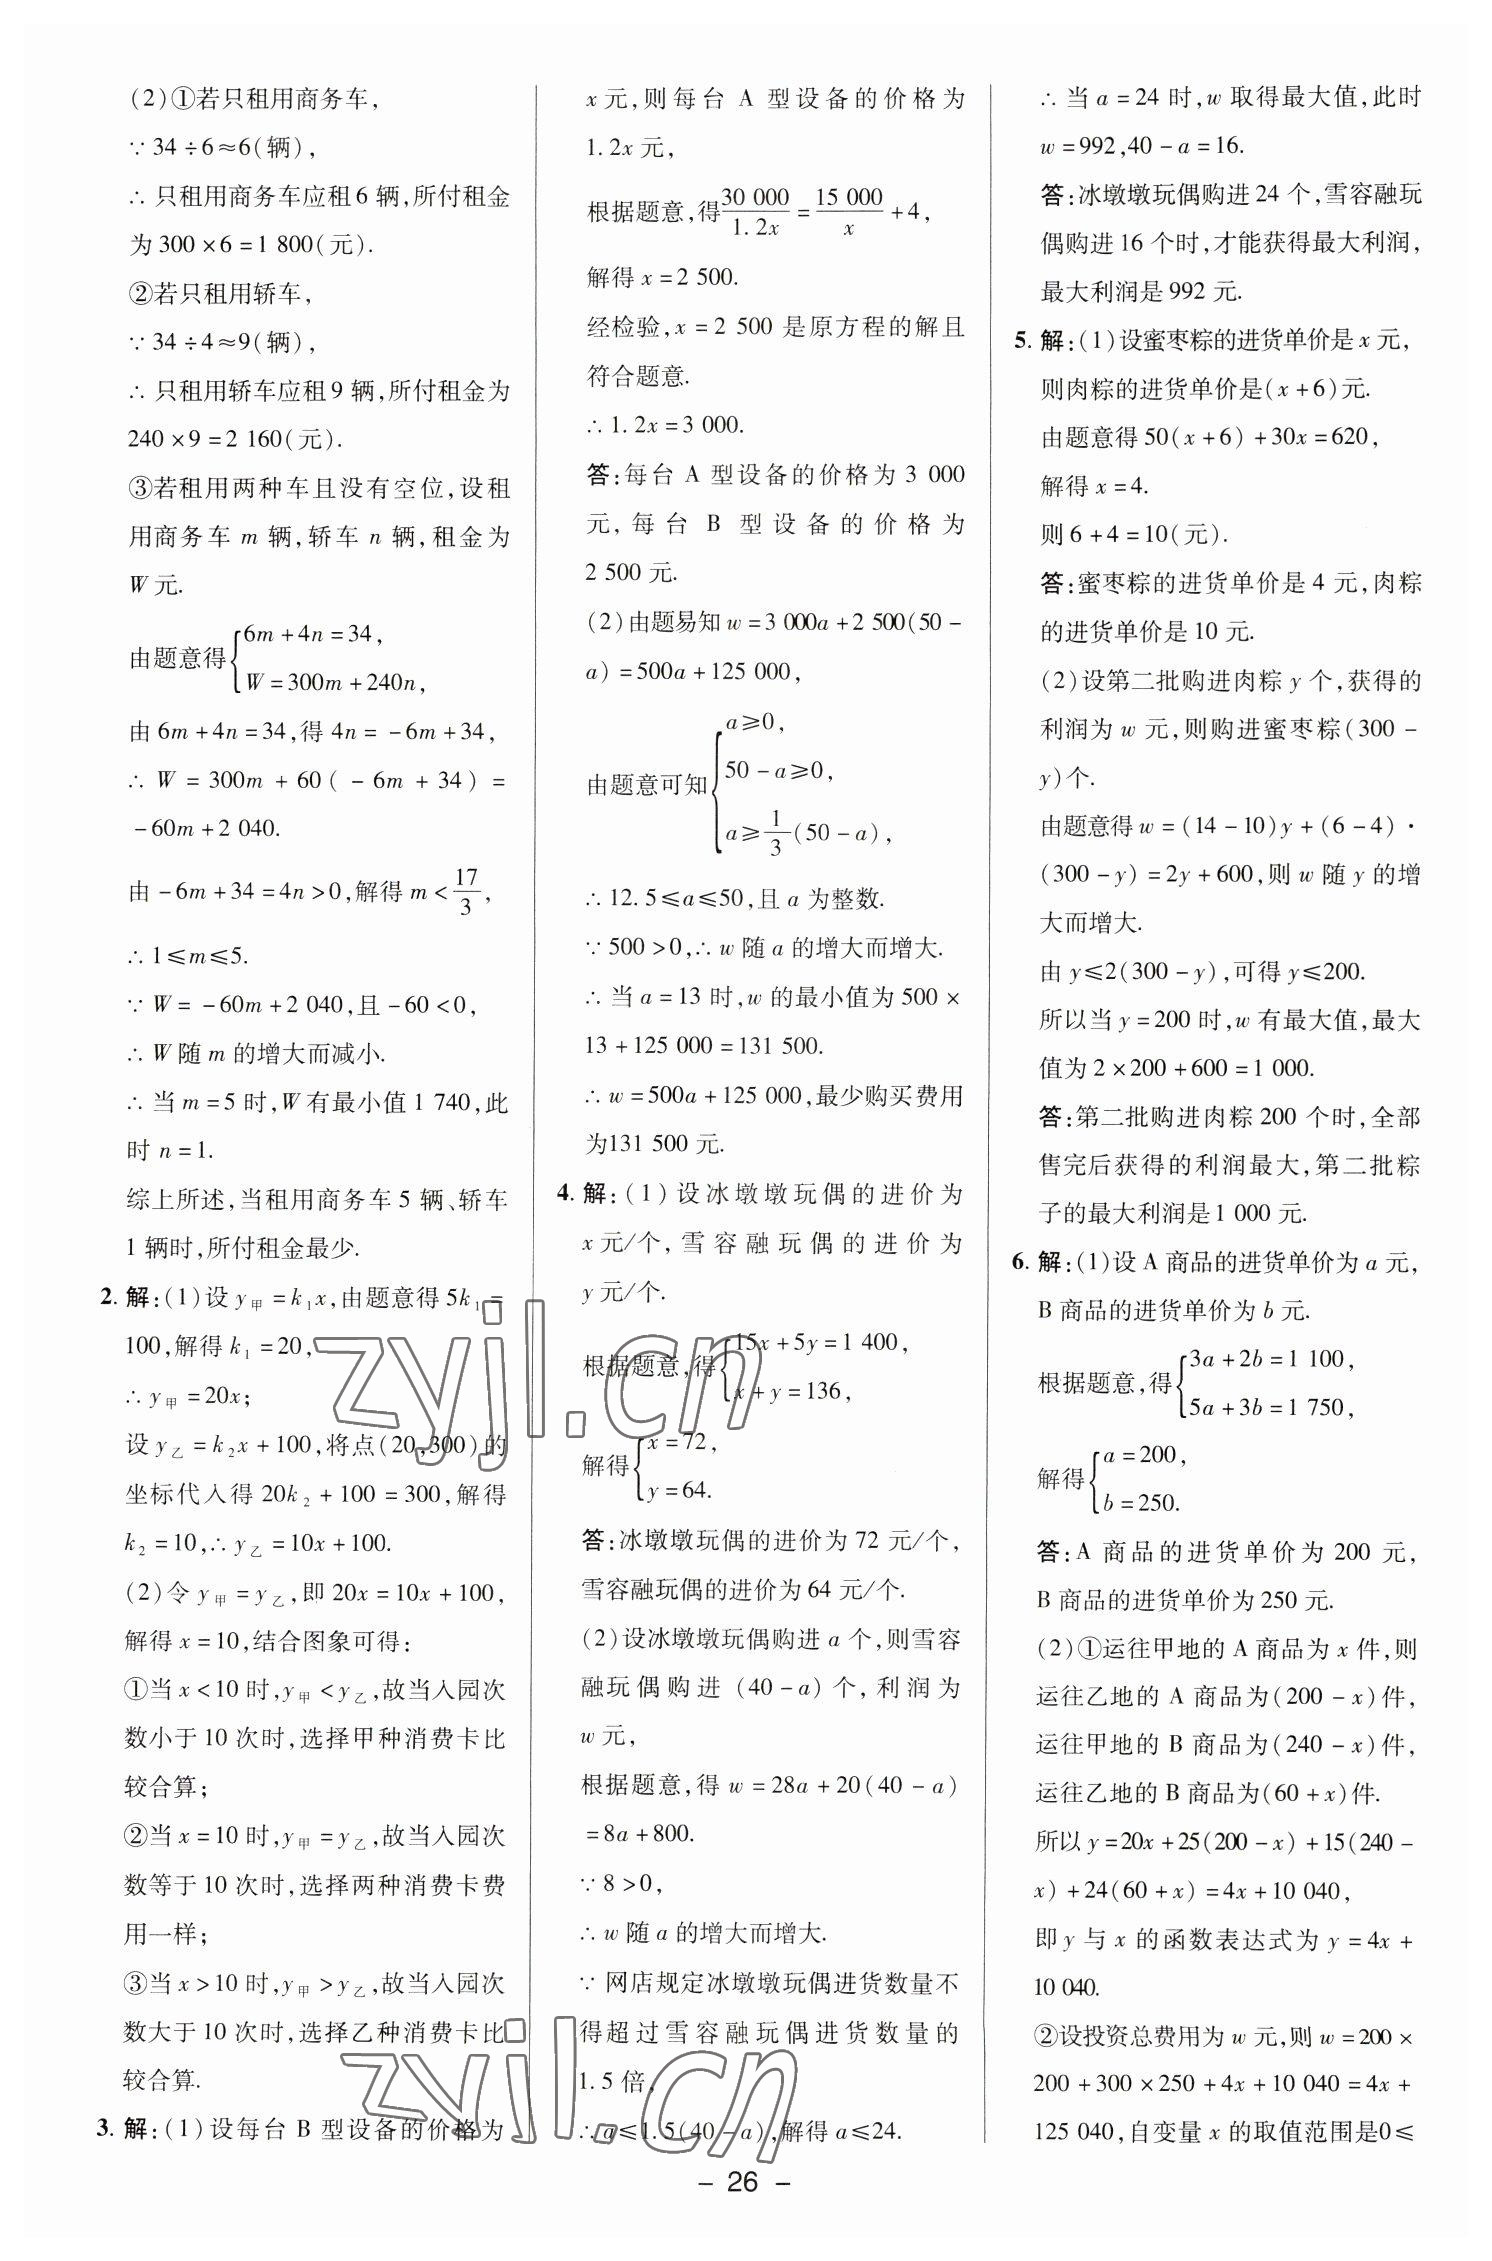 (2)①若只租用商务车,
∵ 34÷6≈6(辆),
∴ 只租用商务车应租 6 辆,所付租金
为 300×6=1 800(元).
②若只租用轿车,
∵ 34÷4≈9(辆),
∴ 只租用轿车应租 9 辆,所付租金为
240×9=2 160(元).
③若租用两种车且没有空位,设租
用商务车 m 辆,轿车 n 辆,租金为
W 元.
由题意得{6m+4n=34,
W=300m+240n,
由 6m+4n=34,得 4n=-6m+34,
∴ W=300m+60(-6m+34)=
-60m+2 040.
由 -6m+34=4n>0,解得 m<17/3,
∴ 1≤m≤5.
∵ W=-60m+2 040,且-60<0,
∴ W 随 m 的增大而减小.
∴ 当 m=5 时,W 有最小值 1 740,此
时 n=1.
综上所述,当租用商务车 5 辆、轿车
1 辆时,所付租金最少.
2. 解:(1)设 y甲=k₁x,由题意得 5k₁=
100,解得 k₁=20,
∴ y甲=20x;
设 y乙=k₂x+100,将点(20,300)的
坐标代入得 20k₂+100=300,解得
k₂=10,∴ y乙=10x+100.
(2)令 y甲=y乙,即 20x=10x+100,
解得 x=10,结合图象可得:
①当 x<10 时,y甲<y乙,故当入园次
数小于 10 次时,选择甲种消费卡比
较合算;
②当 x=10 时,y甲=y乙,故当入园次
数等于 10 次时,选择两种消费卡费
用一样;
③当 x>10 时,y甲>y乙,故当入园次
数大于 10 次时,选择乙种消费卡比
较合算.
3. 解:(1)设每台 B 型设备的价格为
x 元,则每台 A 型设备的价格为
1.2x 元,
根据题意,得30 000/1.2x=15 000/x+4,
解得 x=2 500.
经检验,x=2 500 是原方程的解且
符合题意.
∴ 1.2x=3 000.
答:每台 A 型设备的价格为 3 000
元,每台 B 型设备的价格为
2 500 元.
(2)由题易知 w=3 000a+2 500(50-
a)=500a+125 000,
由题意可知{a≥0,
50-a≥0,
a≥1/3(50-a),
∴ 12.5≤a≤50,且 a 为整数.
∵ 500>0,∴ w 随 a 的增大而增大.
∴ 当 a=13 时,w 的最小值为 500×
13+125 000=131 500.
∴ w=500a+125 000,最少购买费用
为131 500 元.
4. 解:(1)设冰墩墩玩偶的进价为
x 元/个,雪容融玩偶的进价为
y 元/个.
根据题意,得{15x+5y=1 400,
x+y=136,
解得{x=72,
y=64.
答:冰墩墩玩偶的进价为 72 元/个,
雪容融玩偶的进价为 64 元/个.
(2)设冰墩墩玩偶购进 a 个,则雪容
融玩偶购进 (40-a) 个,利润为
w 元,
根据题意,得 w=28a+20(40-a)
=8a+800.
∵ 8>0,
∴ w 随 a 的增大而增大.
∵ 网店规定冰墩墩玩偶进货数量不
得超过雪容融玩偶进货数量的
1.5 倍,
∴ a≤1.5(40-a),解得 a≤24.
∴ 当 a=24 时,w 取得最大值,此时
w=992,40-a=16.
答:冰墩墩玩偶购进 24 个,雪容融玩
偶购进 16 个时,才能获得最大利润,
最大利润是 992 元.
5. 解:(1)设蜜枣粽的进货单价是 x 元,
则肉粽的进货单价是(x+6)元.
由题意得 50(x+6)+30x=620,
解得 x=4.
则 6+4=10(元).
答:蜜枣粽的进货单价是 4 元,肉粽
的进货单价是 10 元.
(2)设第二批购进肉粽 y 个,获得的
利润为 w 元,则购进蜜枣粽(300-
y)个.
由题意得 w=(14-10)y+(6-4)·
(300-y)=2y+600,则 w 随 y 的增
大而增大.
由 y≤2(300-y),可得 y≤200.
所以当 y=200 时,w 有最大值,最大
值为 2×200+600=1 000.
答:第二批购进肉粽 200 个时,全部
售完后获得的利润最大,第二批粽
子的最大利润是 1 000 元.
6. 解:(1)设 A 商品的进货单价为 a 元,
B 商品的进货单价为 b 元.
根据题意,得{3a+2b=1 100,
5a+3b=1 750,
解得{a=200,
b=250.
答:A 商品的进货单价为 200 元,
B 商品的进货单价为 250 元.
(2)①运往甲地的 A 商品为 x 件,则
运往乙地的 A 商品为(200-x)件,
运往甲地的 B 商品为(240-x)件,
运往乙地的 B 商品为(60+x)件.
所以 y=20x+25(200-x)+15(240-
x)+24(60+x)=4x+10 040,
即 y 与 x 的函数表达式为 y=4x+
10 040.
②设投资总费用为 w 元,则 w=200×
200+300×250+4x+10 040=4x+
125 040,自变量 x 的取值范围是0≤
- 26 -
zyjl.cn
zyjl.cn